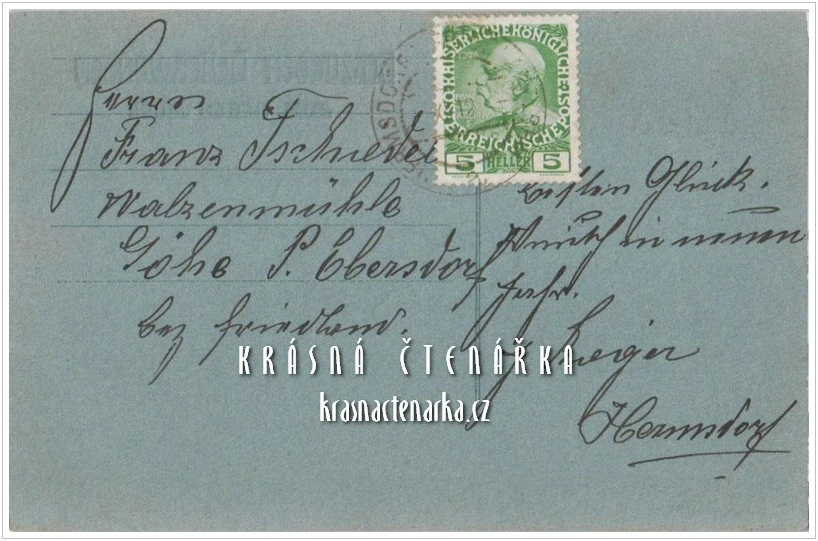 Herrn
Franz Tschiedel
Walzenmühle
Göhe P. Ebersdorf
bez Friedland.
KAISERLICHE KÖNIGLICHE
ÖSTERREICHISCHE POST
5 HELLER 5
besten Glück.
Wunsch in neuen
Jahr.
J Leger
Hermsdorf
KRÁSNÁ ČTENÁŘKA
krasnactenarka.cz